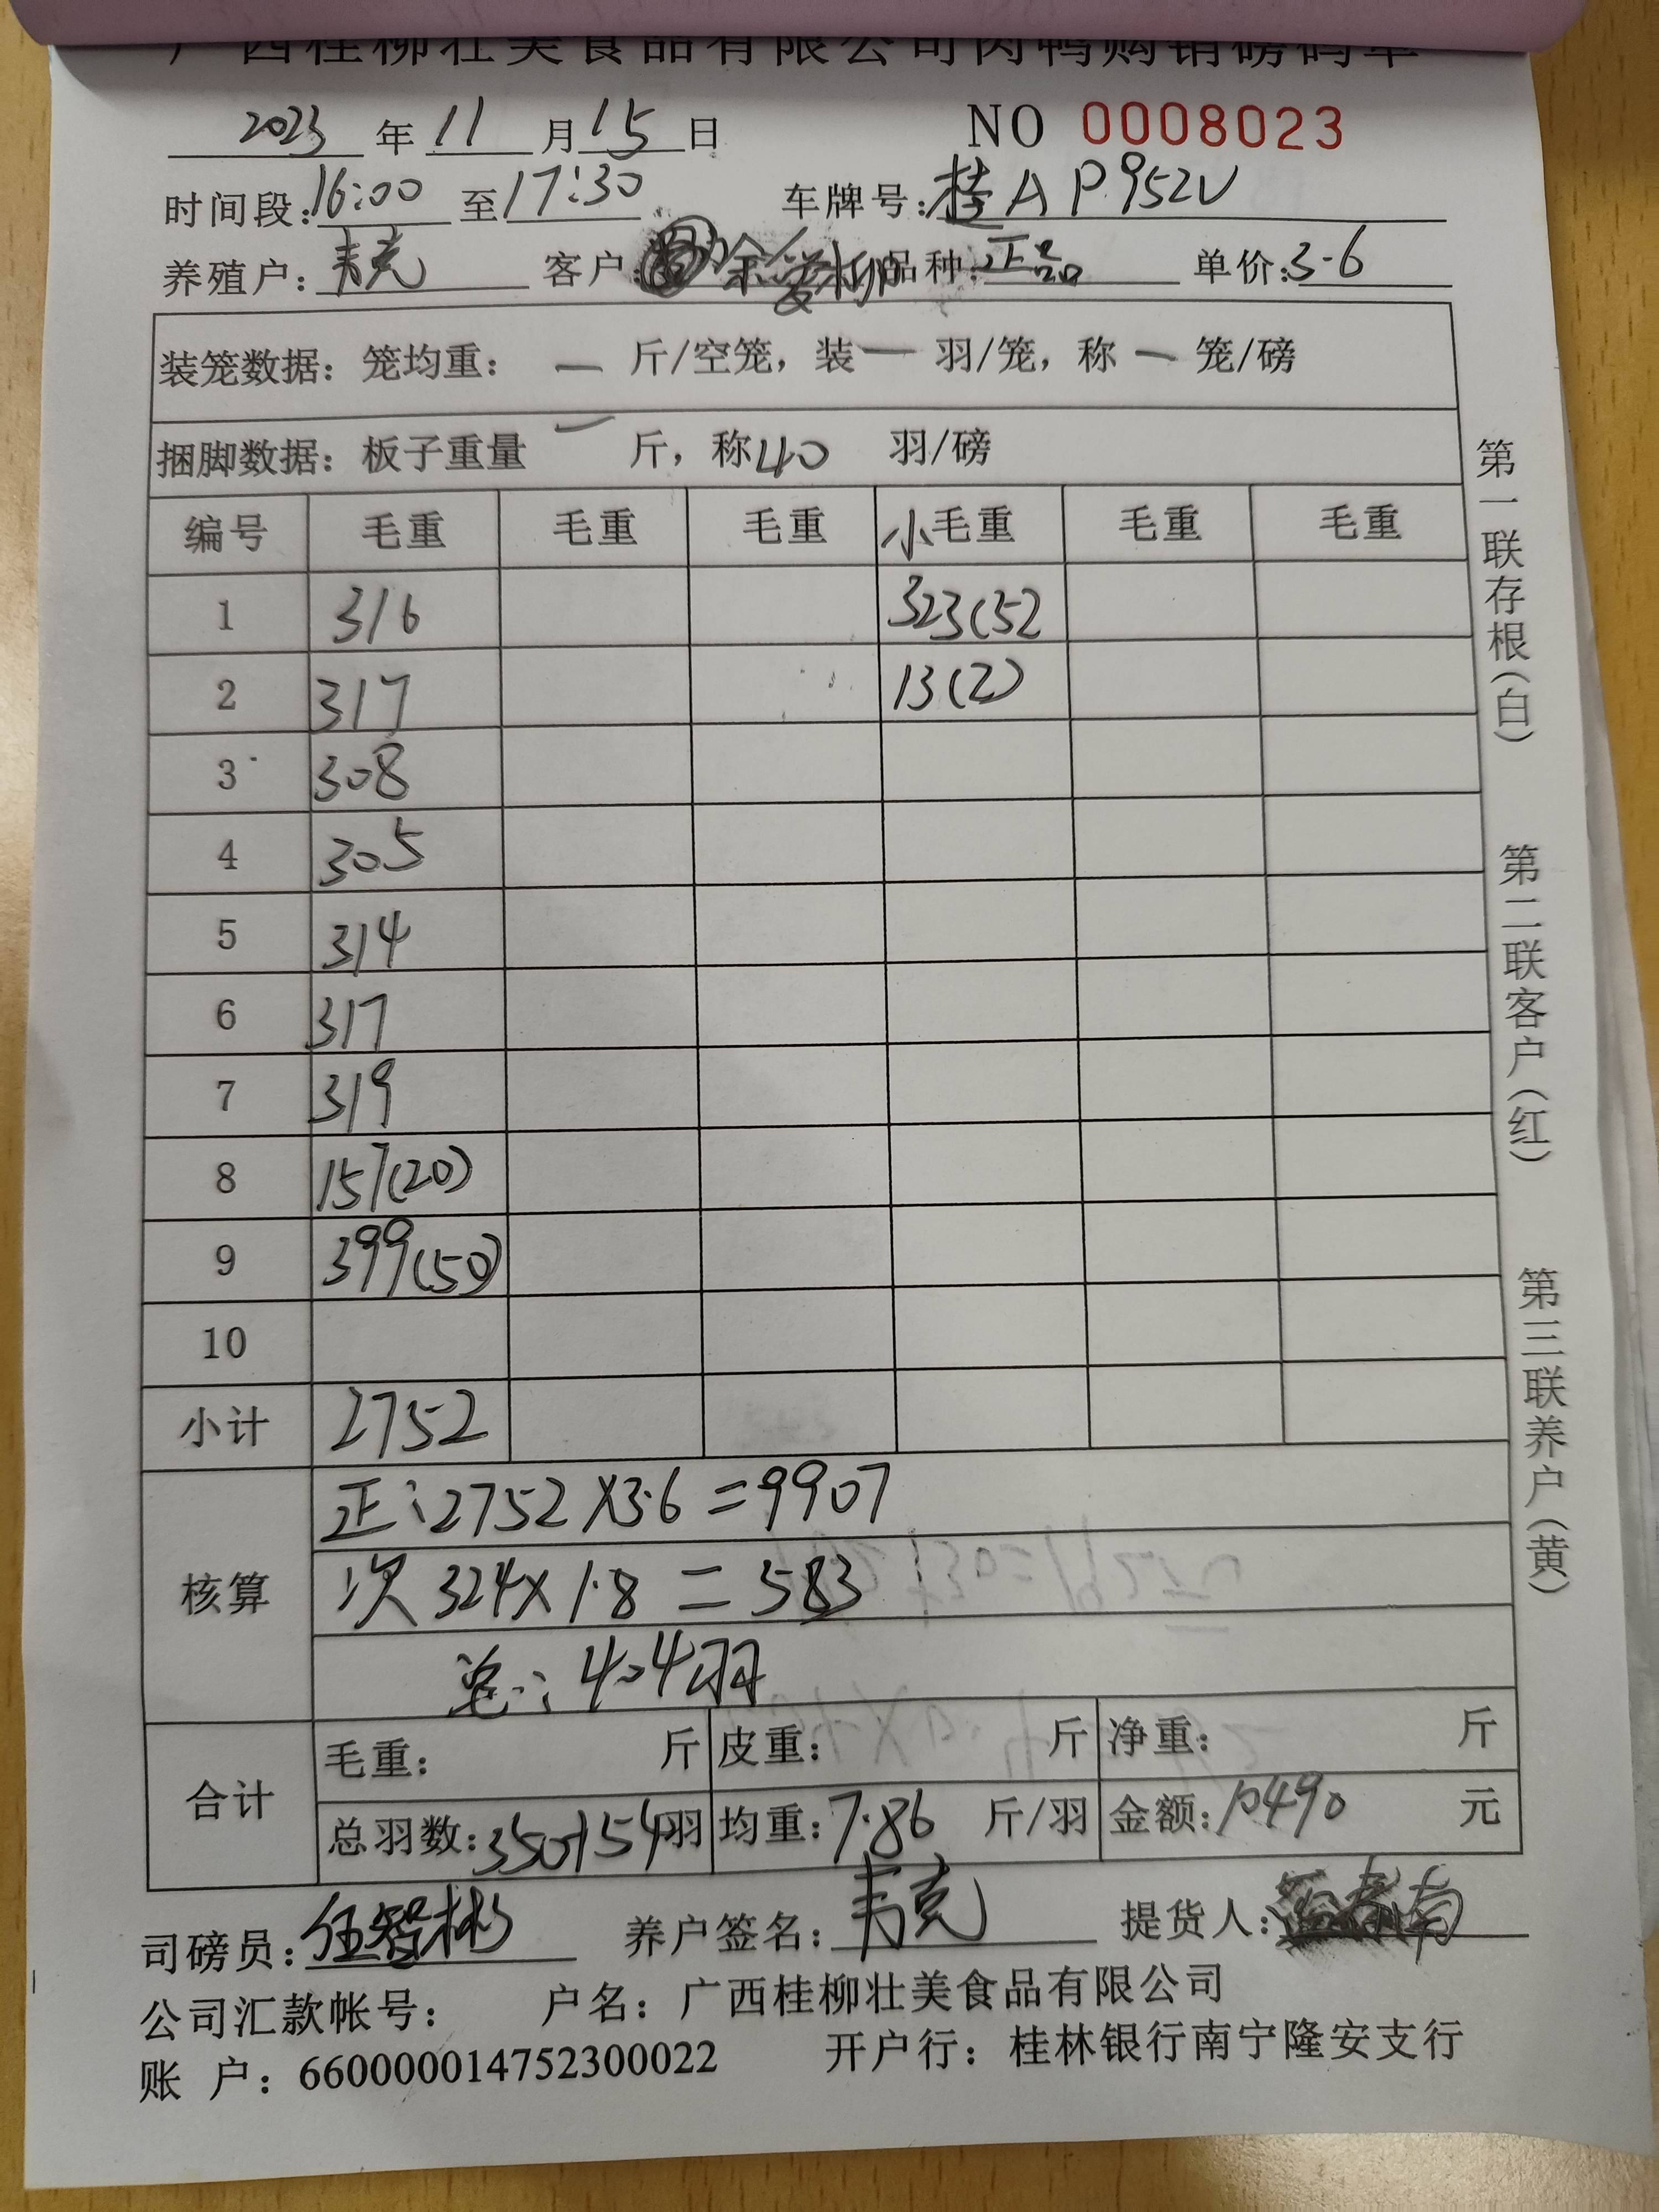 广西桂柳壮美食品有限公司肉鸭购销磅码单
2023年11月15日 NO 0008023
时间段:16:00至17:30 车牌号:桂AP952U
养殖户:韦克 客户:余爱柳 品种:正品 单价:3.6
装笼数据：笼均重： — 斤/空笼，装 — 羽/笼，称 — 笼/磅
捆脚数据：板子重量 — 斤，称40 羽/磅
编号 毛重 毛重 毛重 小毛重 毛重 毛重
1 316 323(52
2 317 13(2)
3 308
4 305
5 314
6 317
7 319
8 157(20)
9 399(50)
10
小计 2752
核算 正:2752×3.6=9907
次 324×1.8=583
总:404羽
合计 毛重： 斤 皮重： 斤 净重： 斤
总羽数:350+54羽 均重:7.86 斤/羽 金额:10490 元
司磅员:任智彬 养户签名:韦克 提货人:南
公司汇款帐号： 户名：广西桂柳壮美食品有限公司
账 户：660000014752300022 开户行：桂林银行南宁隆安支行
第一联存根(白)
第二联客户(红)
第三联养户(黄)